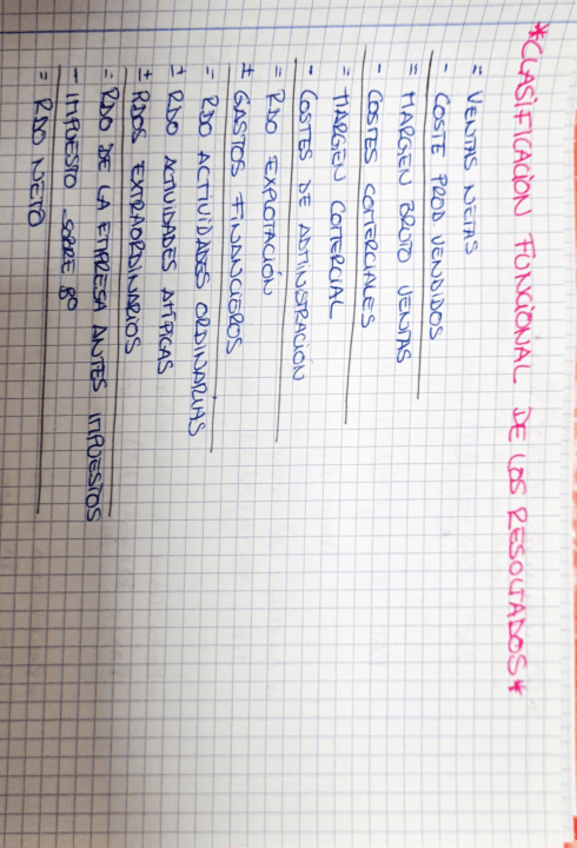 *CLASIFICACIÓN FUNCIONAL DE LOS RESULTADOS*
= VENTAS NETAS
- COSTE PROD VENDIDOS
= MARGEN BRUTO VENTAS
- COSTES COMERCIALES
= MARGEN COMERCIAL
- COSTES DE ADMINISTRACIÓN
= RDO EXPLOTACIÓN
± GASTOS FINANCIEROS
= RDO ACTIVIDADES ORDINARIAS
± RDO ACTIVIDADES ATÍPICAS
± RDOS EXTRAORDINARIOS
= RDO DE LA EMPRESA ANTES IMPUESTOS
- IMPUESTO SOBRE Bº
= RDO NETO